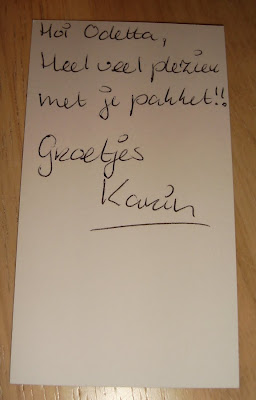 Hoi Odetta,
Heel veel plezier
met je pakket!!
Groetjes
Karin